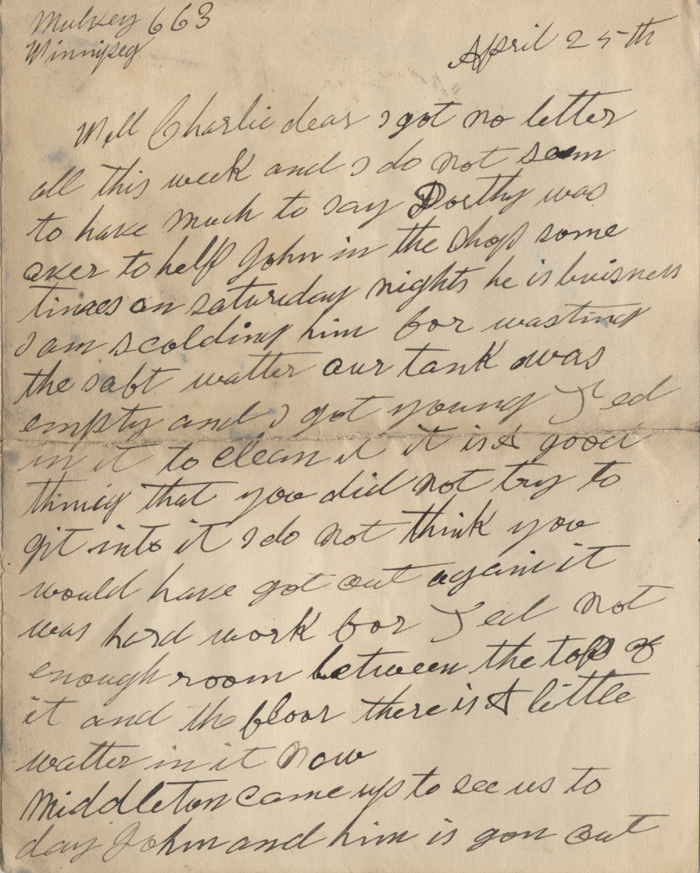 Mulvey 663
Winnipeg
April 25th
Well Charlie dear I got no letter
all this week and I do not seem
to have much to say Dorthy was
over to help John in the shop some
times on saturday nights he is buisness
I am scolding him for wasting
the saft watter our tank was
empty and I got young Ted
in it to clean it it is A good
thing that you did not try to
git into it I do not think you
would have got out again it
was hard work for Ted not
enough room between the top of
it and the floor there is A little
watter in it Now
Middleton came up to see us to
day John and him is gon out